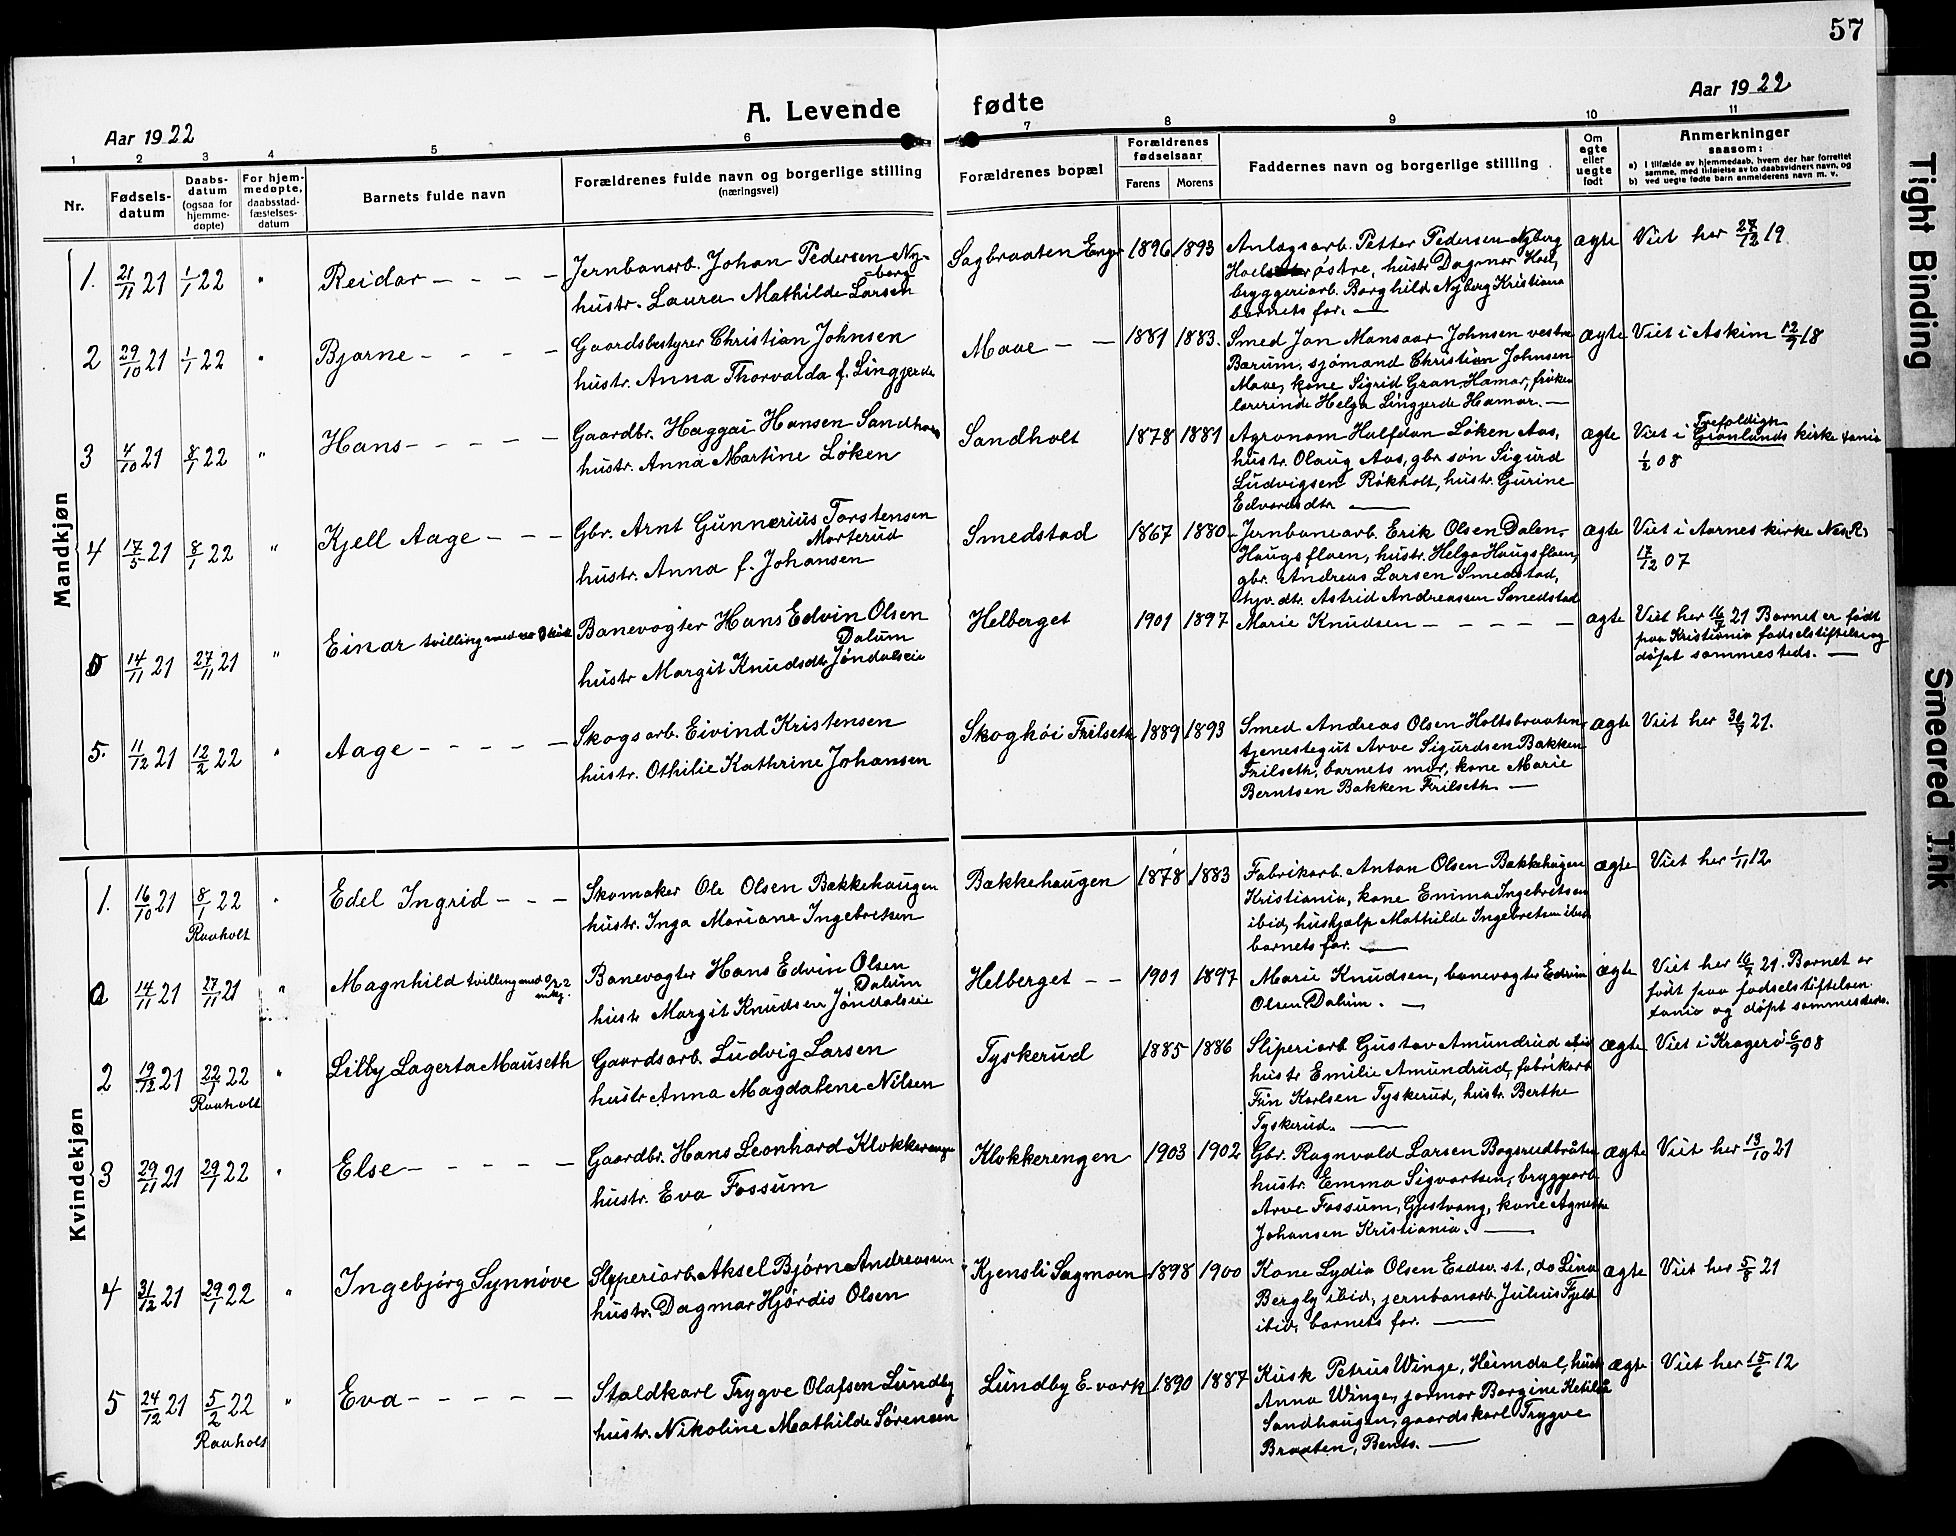 57
Aar 1922
A. Levende fødte
Aar 1922
1 2 3 4 5 6 7 8 9 10 11
Nr.
Fødsels-
datum
Daabs-
datum
(ogsaa for
hjemme-
døpte)
For hjem-
medøpte,
daabsstad-
fæstelses-
datum
Barnets fulde navn
Forældrenes fulde navn og borgerlige stilling
(næringsvei)
Forældrenes bopæl
Forældrenes
fødselsaar
Farens Morens
Faddernes navn og borgerlige stilling
Om
ægte
eller
uegte
født
Anmerkninger
saasom:
a) I tilfælde av hjemmedaab, hvem der har forrettet
samme, med tilføielse av to daabsvidners navn, og
b) ved uegte fødte barn anmelderens navn m. v.
Mandkjøn
1. 21/11 21 1/1 22 " Reidar – – – –
Jernbanarb. Johan Pedersen Ny-
berg
hustr. Laura Mathilde Larsen
Sagbraaten Enger 1896 1893
Anlægsarb. Petter Pedersen Nyberg
Hoel østre, hustr. Dagmar Hoel,
bryggeriarb. Borghild Nyberg Kristiania
barnets far. —
ægte
Viet her 27/12 19
2 29/10 21 1/1 22 " Bjarne – – – –
Gaardsbestyrer Christian Johnsen
hustr. Anna Thorvalda f. Lingjerde
Maae – – 1881 1883.
Smed Jan Mansaar Johnsen vestre
Bærum, sjømand Christian Johnsen
Maae, kone Sigrid Gran Hamar, frøken
lærerinde Helga Lingjerde Hamar. —
ægte
Viet i Askim 12/9 18
3 4/10 21 8/1 22 " Hans – – – – –
Gaardbr. Haggai Hansen Sandholt
hustr. Anna Martine Løken
Sandholt 1878 1881
Agronom Halfdan Løken Aas,
hustr. Olaug Aas, gbr. søn Sigurd
Ludvigsen Røkholt, hustr. Gurine
Edvardsdtr. —
ægte
Trefoldigh
Viet i Grønlands kirke tania
1/2 08
4 17/5 21 8/1 22 " Kjell Aage – – –
Gbr. Arnt Gunnerius Torstensen
Morterud
hustr. Anna f. Johansen
Smedstad 1867 1880
Jernbanearb. Erik Olsen Dalen,
Haugsflaen, hustr. Helga Haugsflaen,
gbr. Andreas Larsen Smedstad,
hjv. dtr. Astrid Andreassen Smedstad
ægte
Viet i Aarnes kirke Nes R.
17/12 07
0 14/11 21 27/11 21 " Einar tvilling med
Banevogter Hans Edvin Olsen
Dalum
hustr Margit Knudsdtr. Jøndalseie
Helberget 1901 1897
Marie Knudsen – – – – –
ægte
Viet her 16/7 21 Barnet er født
paa Kristiania fødselsstiftelse og
døpt sammesteds. —
5. 11/12 21 12/2 22 " Aage – – – – –
Skogsarb. Eivind Kristensen
hustr. Othilie Kathrine Johansen
Skoghøi Frilseth 1889 1893
Smed Andreas Olsen Holtsbraaten,
tjenestegut Arve Sigurdsen Bakken
Frilseth, barnets mor, kone Marie
Berntsen Bakken Frilseth. —
ægte
Viet her 30/9 21.
Kvindekjøn
1. 16/10 21 8/1 22 " Edel Ingrid – – –
Raaholt
Skomaker Ole Olsen Bækkehaugen
hustr. Inga Mariane Ingebretsen
Bækkehaugen 1878 1883
Fabrikarb. Anton Olsen Bækkehaugen
Kristiania, kone Emma Ingebretsen
ibid, hushjælp Mathilde Ingebretsen ibid
barnets far. —
ægte
Viet her 1/11 12
0 14/11 21 27/11 21 " Magnhild tvilling med
Banevogter Hans Edvin Olsen
Dalum
hustr Margit Knudsen Jøndalseie
Helberget – – 1901 1897
Marie Knudsen, banevogter Edvin
Olsen Dalum. —
ægte
Viet her 16/7 21. Barnet er
født paa fødselsstiftelsen
tania og døpt sammesteds.
2 19/12 21 22/1 22 " Lilly Lagerta Mauseth
Raaholt
Gaardsarb. Ludvig Larsen
hustr Anna Magdalene Nilsen
Tyskerud 1885 1886
Sliperiarb Gustav Amundrud ibid
hustr Emilie Amundrud, fabrikarb
Finn Karlsen Tyskerud, hustr. Berthe
Tyskerud. —
ægte
Viet i Kragerø 6/9 08
3 29/11 21 29/1 22 " Else – – – – –
Gaardbr. Hans Leonhard Klokkerenge
hustr. Eva Fossum
Klokkerengen 1903 1902
Gbr. Ragnvald Larsen Bøgsrudbråten
hustr. Emma Sigvartsen, bryggarb
Arve Fossum, Gjestvang, kone Agnethe
Johansen Kristiania. —
ægte
Viet her 13/10 21
4 31/12 21 29/1 22 " Ingebjørg Synnøve
Slyperiarb. Aksel Bjørn Andreassen
hustr. Dagmar Hjørdis Olsen
Kjensli Sagmoen 1898 1900
Kone Lydia Olsen Eidsv. st., do Lina
Bergly ibid, jernbanarb. Julius Fjeld
ibid, barnets far. —
ægte
Viet her 5/8 21
5 24/12 21 5/2 22 " Eva – – – – –
Raaholt
Staldkarl Trygve Olafsen Lundby
hustr. Nikoline Mathilde Sørensen
Lundby E-værk 1890 1887
Kusk Petrus Winge, Heimdal, hustr
Anna Winge, jormor Borgine Ketilså
Sandhaugen, gaardskarl Trygve
Braaten, Bents. —
ægte
Viet her 15/6 12
Tight Binding
Smeared Ink